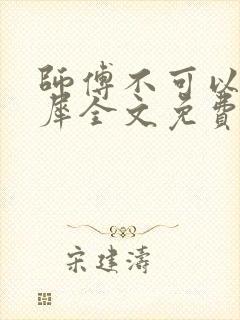 師傅不可以
犀全文免費
宋建濤